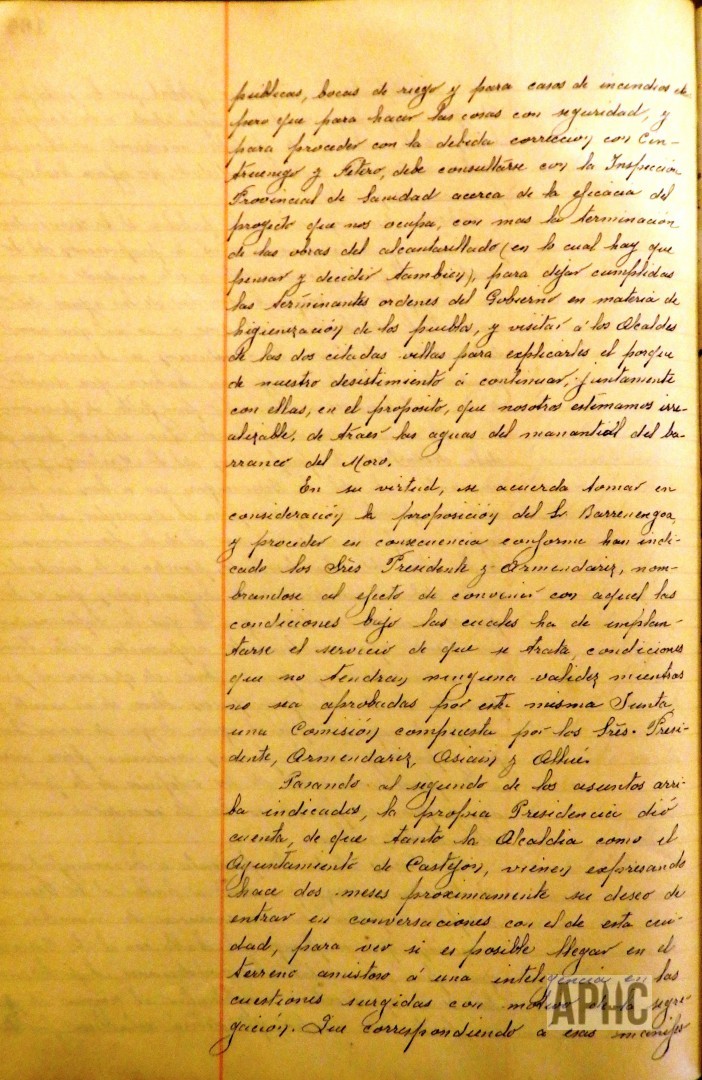 públicas, bocas de riego y para casos de incendios etc
pero que para hacer las cosas con seguridad, y
para proceder con la debida correccion con Cin-
truenigo y Fitero, debe consultarse con la Inspeccion
Provincial de Sanidad acerca de la eficacia del
proyecto que nos ocupa, con mas la terminación
de las obras del alcantarillado (en lo cual hay que
pensar y decidir tambien), para dejar cumplidas
las terminantes ordenes del Gobierno en materia de
higienización de los pueblos, y visitar á los Alcaldes
de las dos citadas villas para explicarles el porque
de nuestro desistimiento á continuar, juntamente
con ellas, en el proposito, que nosotros estimamos irre-
alizable, de traer las aguas del manantial del ba-
rranco del Moro.
En su virtud, se acuerda tomar en
consideración la proposición del Sr Barrenengoa,
y proceder en consecuencia conforme han indi-
cado los Sres Presidente y Armendariz, nom-
brandose al efecto de convenir con aquel las
condiciones bajo las cuales ha de implan-
tarse el servicio de que se trata, condiciones
que no tendran ninguna validez mientras
no sea aprobadas por esta misma Junta,
una Comisión compuesta por los Sres. Presi-
dente, Armendariz, Asiain y Allué.
Pasando al segundo de los asuntos arri-
ba indicados, la propia Presidencia dió
cuenta, de que tanto la Alcaldia como el
Ayuntamiento de Castejon, vienen expresando
hace dos meses proximamente su deseo de
entrar en conversaciones con el de esta ciu-
dad, para ver si es posible llegar en el
terreno amistoso á una inteligencia en las
cuestiones surgidas con motivo de la segre-
gación. Que correspondiendo a esas manifes-
APHC